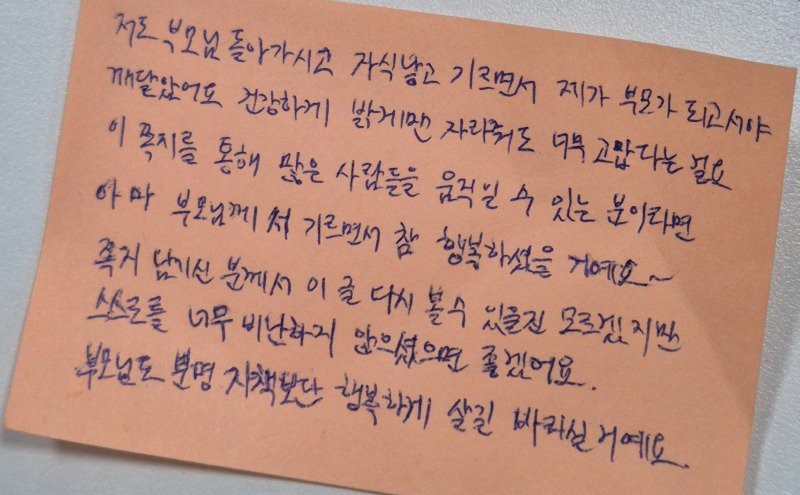 저도 부모님 돌아가시고 자식낳고 기르면서 제가 부모가 되고서야
깨달았어요 건강하게 밝게만 자라줘도 너무 고맙다는 걸요
이 쪽지를 통해 많은 사람들을 움직일 수 있는 분이라면
아마 부모님께서 기르면서 참 행복하셨을 거예요~
쪽지 남기신 분께서 이 글 다시 볼 수 있을진 모르겠지만
스스로를 너무 비난하지 않으셨으면 좋겠어요.
부모님도 분명 자책보단 행복하게 살길 바라실 거예요.